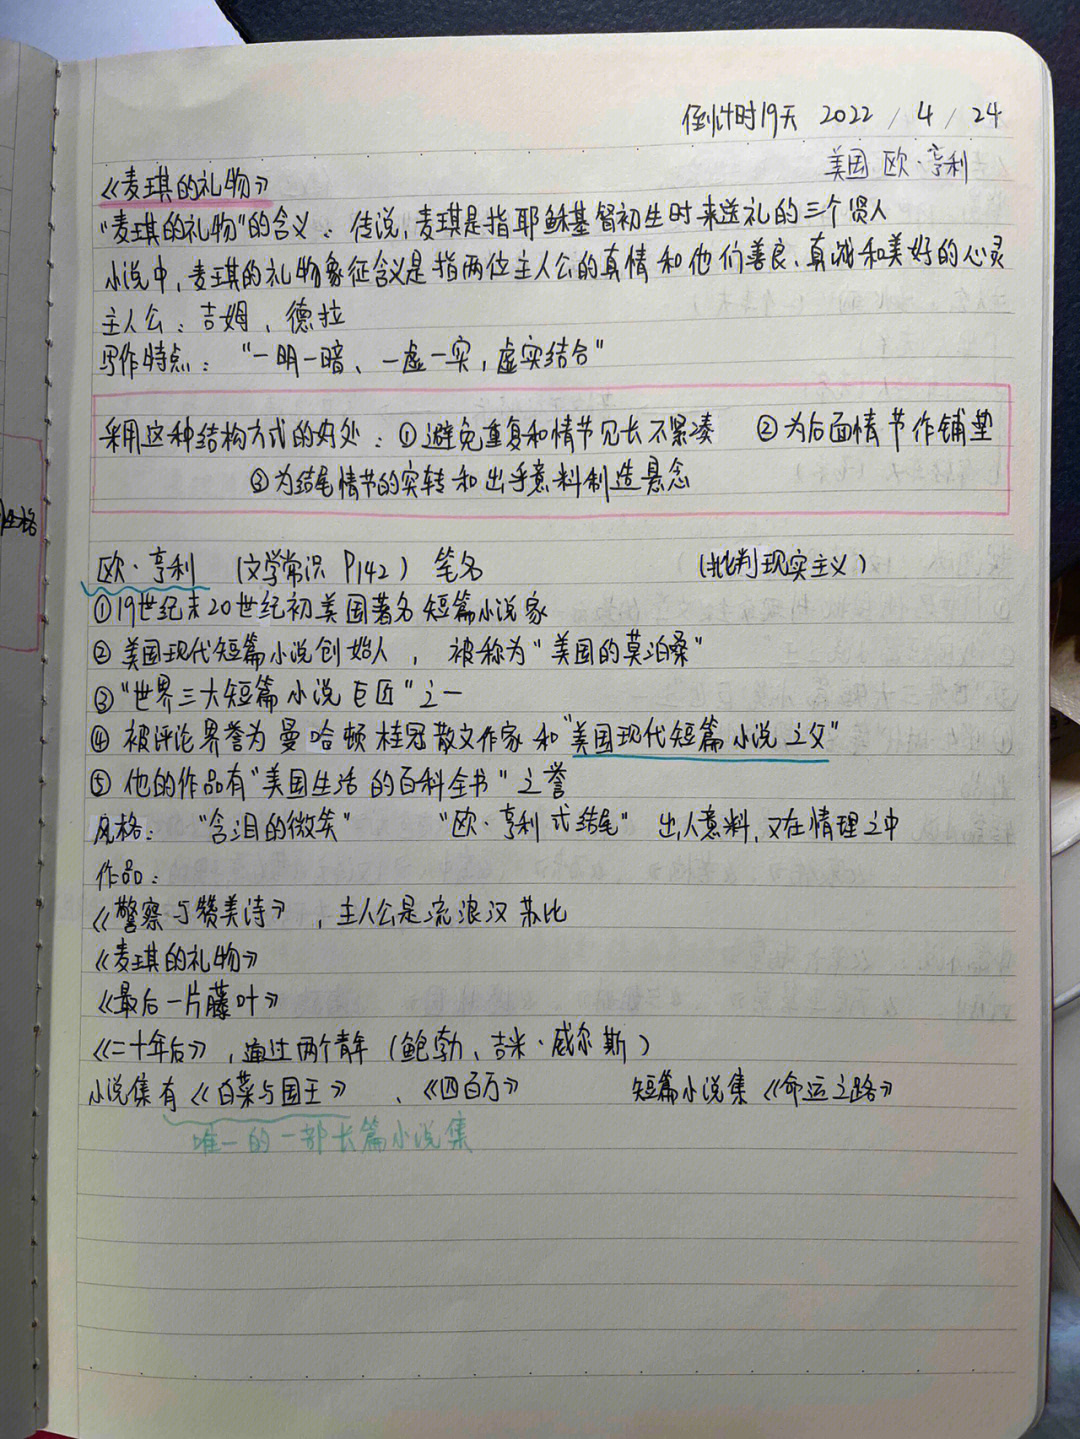 倒计时19天 2022 / 4 / 24
美国 欧·亨利
《麦琪的礼物》
"麦琪的礼物"的含义：传说，麦琪是指耶稣基督初生时来送礼的三个贤人
小说中，麦琪的礼物象征含义是指两位主人公的真情和他们善良、真诚和美好的心灵
主人公：吉姆、德拉
写作特点："一明一暗、一虚一实，虚实结合"
采用这种结构方式的好处：①避免重复和情节冗长不紧凑 ②为后面情节作铺垫
③为结尾情节的突转和出乎意料制造悬念
性格
欧·亨利 （文学常识 P142） 笔名 （批判现实主义）
①19世纪末20世纪初美国著名短篇小说家
②美国现代短篇小说创始人，被称为"美国的莫泊桑"
③"世界三大短篇小说巨匠"之一
④被评论界誉为曼哈顿桂冠散文作家和"美国现代短篇小说之父"
⑤他的作品有"美国生活的百科全书"之誉
风格："含泪的微笑" "欧·亨利式结尾" 出人意料，又在情理之中
作品：
《警察与赞美诗》，主人公是流浪汉苏比
《麦琪的礼物》
《最后一片藤叶》
《二十年后》，通过两个青年（鲍勃、吉米·威尔斯）
小说集有《白菜与国王》、《四百万》 短篇小说集《命运之路》
唯一的一部长篇小说集